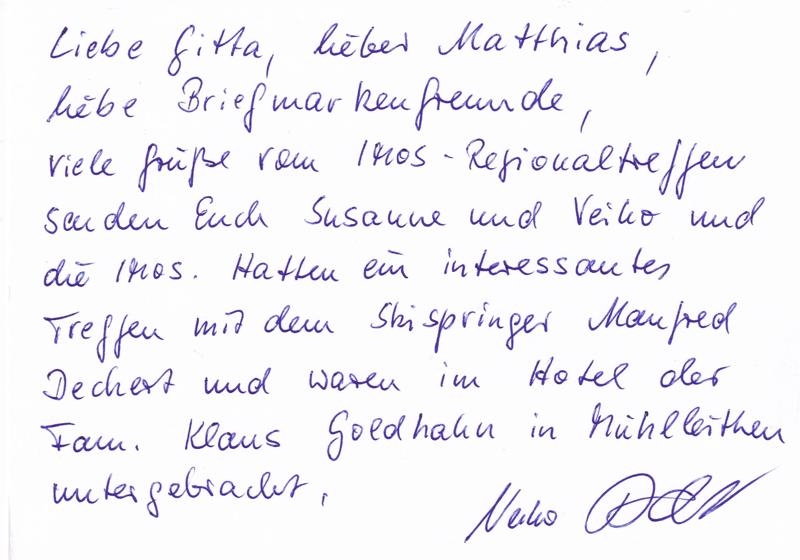 Liebe Gitta, lieber Matthias,
liebe Briefmarkenfreunde,
viele Grüße vom IMOS-Regionaltreffen
senden Euch Susanne und Veiko und
die IMOS. Hatten ein interessantes
Treffen mit dem Skispringer Manfred
Deckert und waren im Hotel der
Fam. Klaus Goldhahn in Mühlleithen
untergebracht,
Veiko